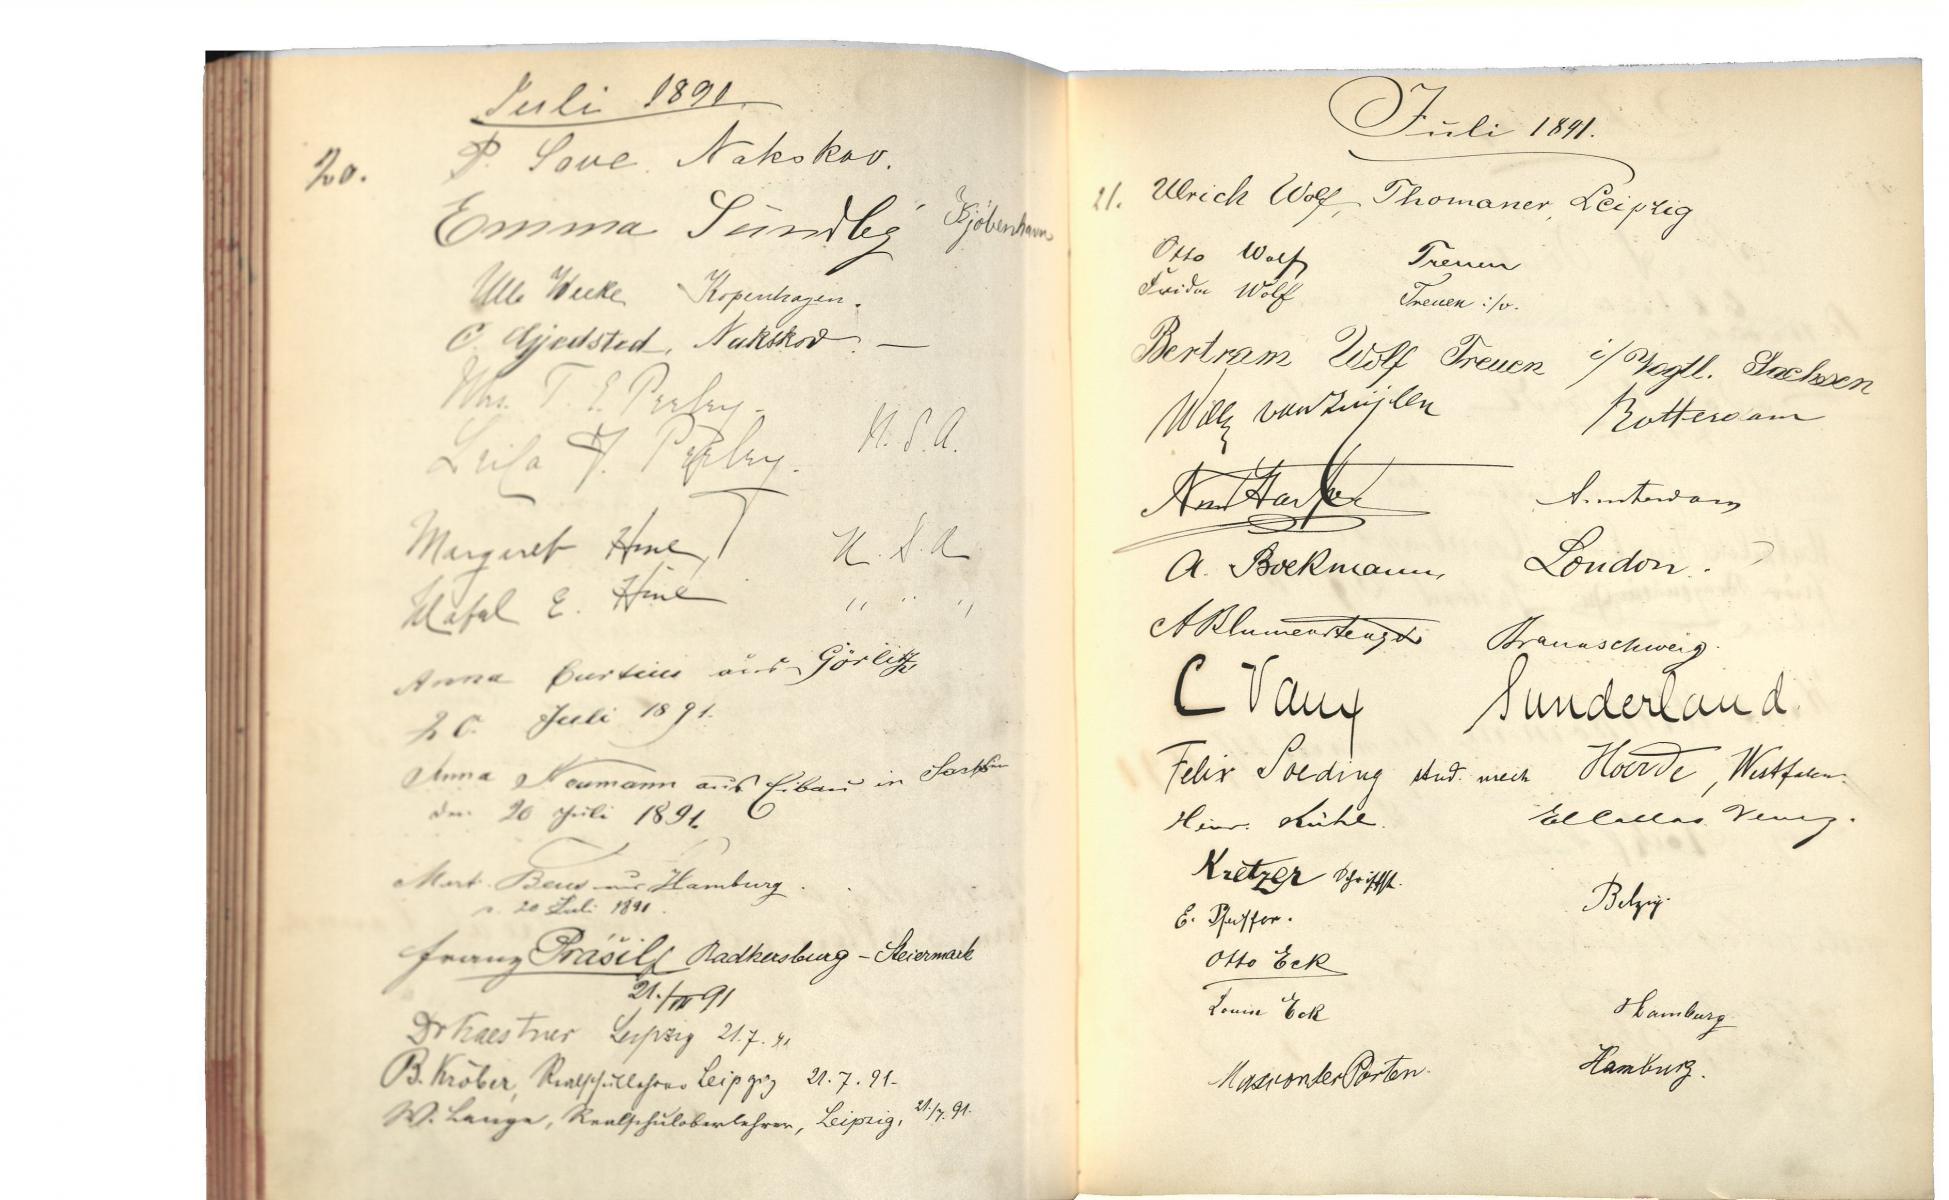 Juli 1891.
20. P. Save. Nakskov.
Emma Sundby Kjöbenhavn
Kopenhagen.
C. Gjedsted, Nakskov. —
Mrs. T. E. Perley.
Leila F. Perley. U. S. A.
Margaret Hine, U. S. A
E. Hine " " "
Anna Curtius aus Görlitz
20. Juli 1891.
Anna Neumann aus Eibau in Sachsen
den 20 Juli 1891.
aus Hamburg.
d. 20 Juli 1891.
Franz Präsil Radkersburg – Steiermark
21./VII 91
Dr Kaestner Leipzig 21.7.91
B. Kröber, Realschullehrer Leipzig 21.7.91.
W. Lange, Realschuloberlehrer, Leipzig, 21./7. 91.
Juli 1891.
21. Ulrich Wolf, Thomaner, Leipzig
Otto Wolf Treuen
Frida Wolf Treuen i/v.
Bertram Wolf Treuen i/Vogtl. Sachsen
van Zuijlen Rotterdam
Amsterdam
A. Boekmann, London.
Braunschweig.
C Vaux Sunderland.
Felix Soeding stud. mech Hoerde, Westfalen.
Heinr. Kühl. El Callao Venez.
Kretzer Schriftst.
E. Pfeiffer. Belzig.
Otto Eck
Louis Eck Hamburg
Max von der Porten. Hamburg.